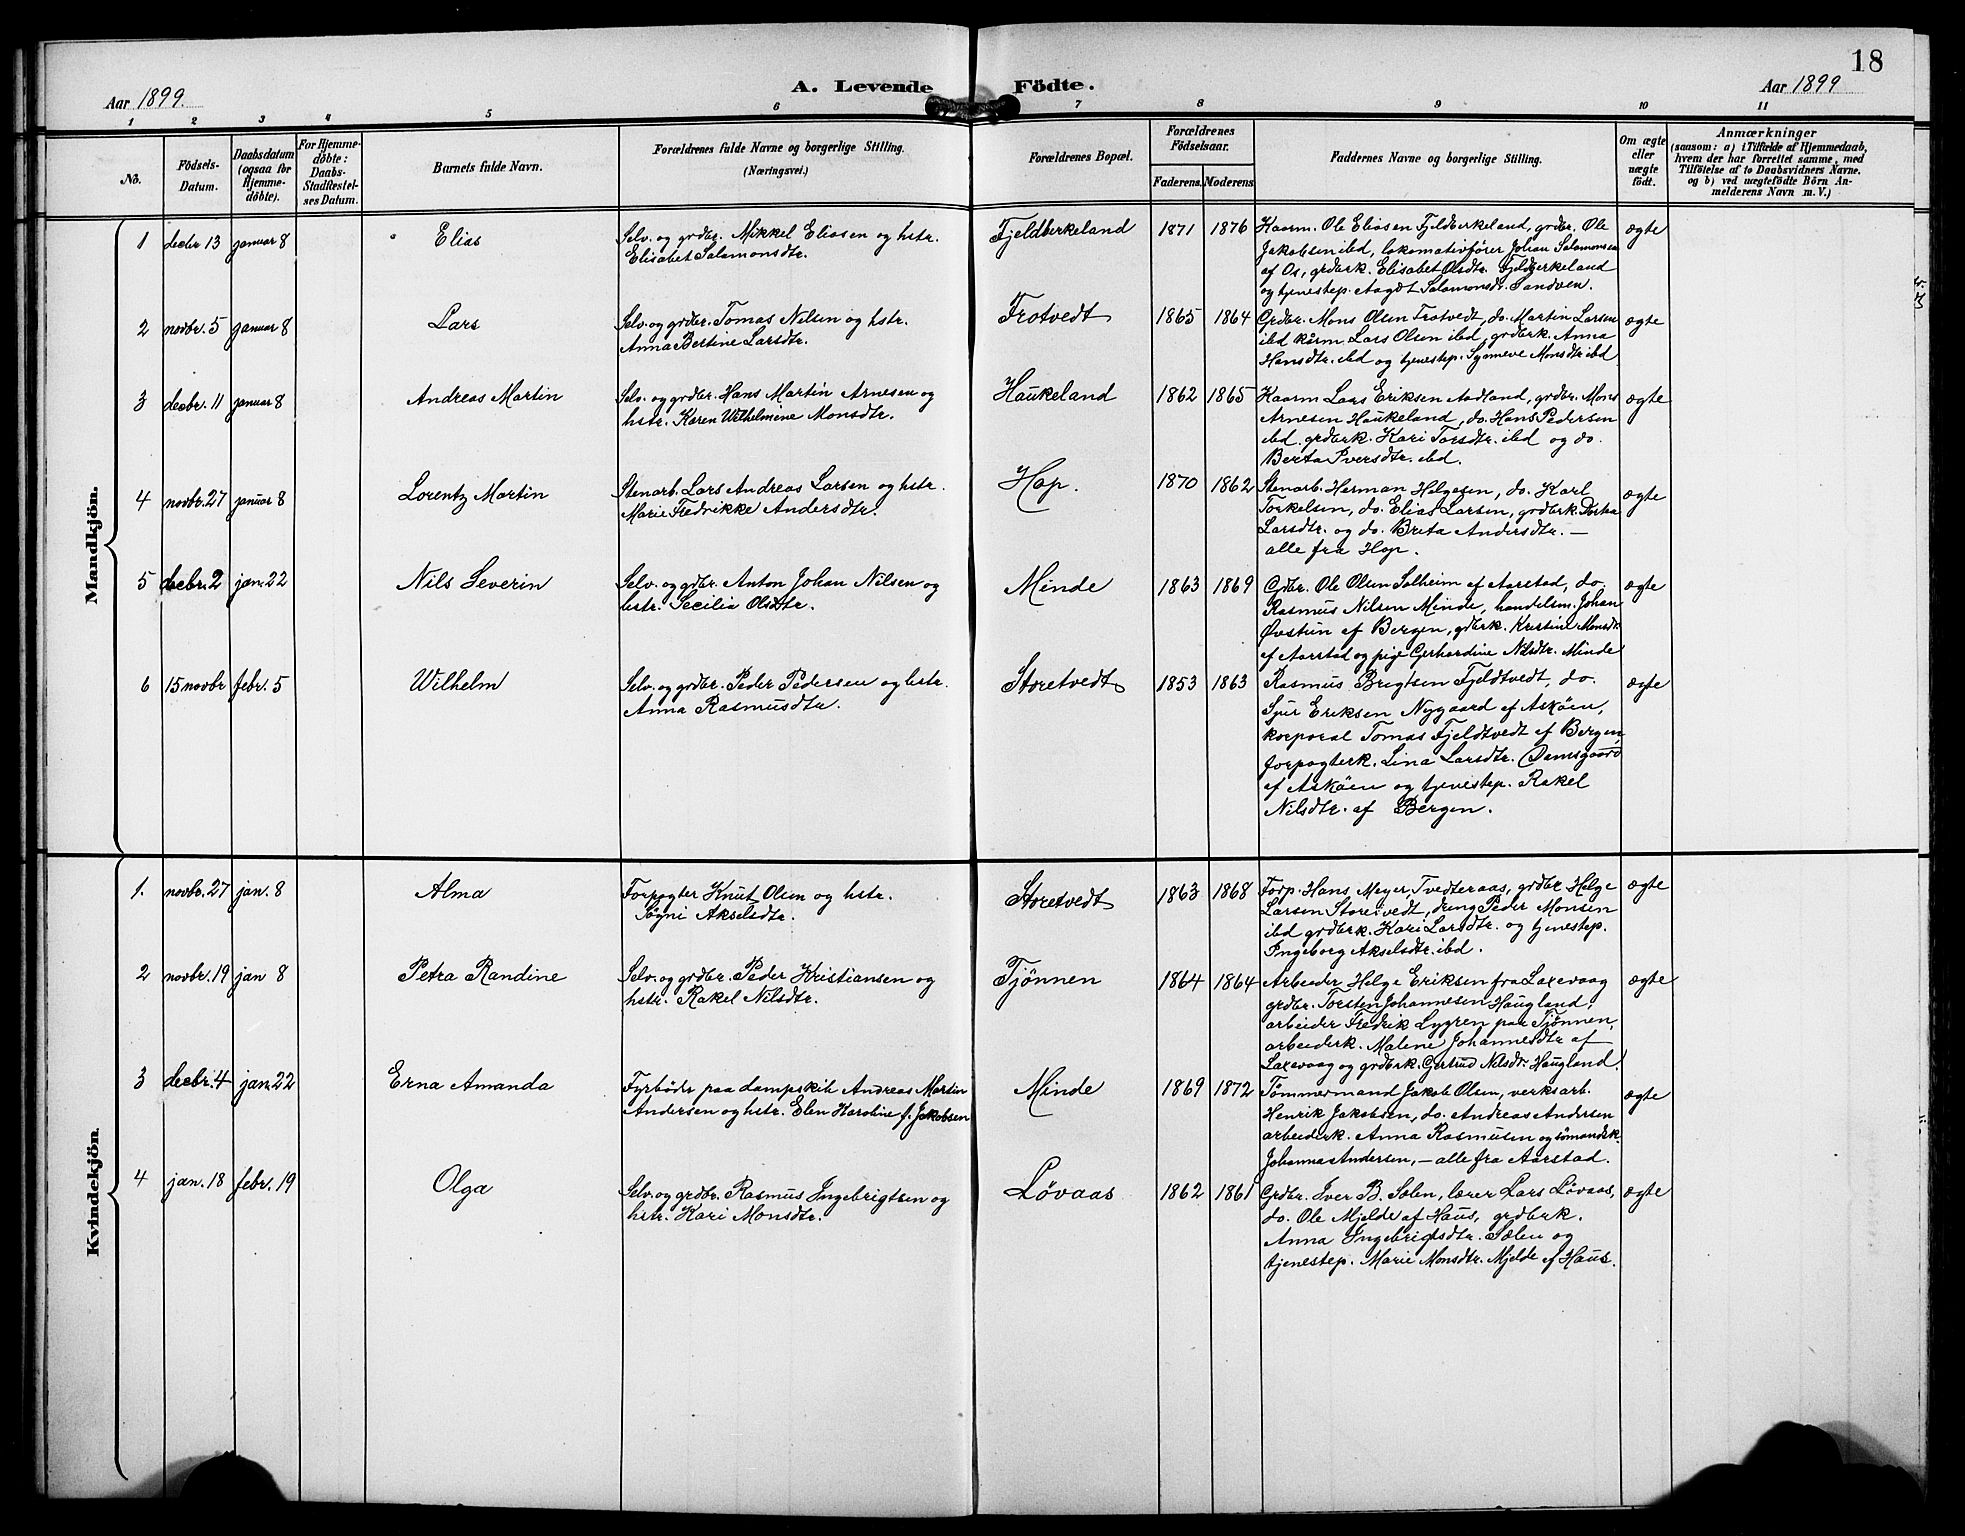 18
Aar 1899.
A. Levende Födte.
Aar 1899
1 2 3 4 5 6 7 8 9 10 11
No.
Födsels-Datum.
Daabsdatum (ogsaa for Hjemmedöbte).
For Hjemmedöbte: Daabs-Stadfæstelses Datum.
Barnets fulde Navn.
Forældrenes fulde Navne og borgerlige Stilling.
(Næringsvei.)
Forældrenes Bopæl.
Forældrenes Födselsaar.
Faderens. Moderens.
Faddernes Navne og borgerlige Stilling.
Om ægte eller uægte födt.
Anmærkninger
(saasom: a) i Tilfælde af Hjemmedaab, hvem der har forrettet samme, med Tilföielse af to Daabsvidners Navne. og b) ved uægtefödte Börn Anmelderens Navn m. V.)
Mandkjön.
1 decbr 13 januar 8 Elias
Selv. og grdbr. Mikkel Eliasen og hstr.
Elisabet Salamonsdtr.
Fjeldbirkeland 1871 1876
Kaarm. Ole Eliasen Fjeldbirkeland, grdbr. Ole
Jakobsen ibd, lokomativfører Johan Salomonsen
af Os, grdbrk. Elisabet Olsdtr. Fjeldbirkeland
og tjenestep. Aagot Salamonsdtr. Sandven.
ægte
2 novbr. 5 januar 8 Lars
Selv. og grdbr. Tomas Nilsen og hstr.
Anna Bertine Larsdtr.
Trotvedt 1865 1864
Grdbr. Mons Olsen Trotvedt, do. Martin Larsen
ibd kårm. Lars Olsen ibd, grdbrk. Anna
Hansdtr. ibd og tjenestep. Synneve Monsdtr ibd
ægte
3 decbr. 11 januar 8 Andreas Martin
Selv. og grdbr. Hans Martin Arnesen og
hstr. Karen Wilhelmine Monsdtr.
Haukeland 1862 1865
Kaarm Lars Eriksen Aadland, grdbr. Mons
Arnesen Haukeland, do. Hans Pedersen
ibd. grdbrk. Kari Torsdtr. ibd og do.
Berta Iversdtr. ibd.
ægte
4 novbr. 27 januar 8 Lorentz Martin
Stenarb. Lars Andreas Larsen og hstr.
Marie Fredrikke Andersdtr.
Hop. 1870 1862
Stenarb. Herman Helgesen, do. Karl
Torkelsen, do. Elias Larsen, grdbrk. Dorthea
Larsdtr. og do. Brita Andersdtr. —
alle fra Hop.
ægte
5 decbr. 2 jan. 22 Nils Severin
Selv. og gdbr. Anton Johan Nilsen og
hstr. Secilia Olsdtr.
Minde 1863 1869
Grdbr. Ole Olsen Solheim af Aarstad, do.
Rasmus Nilsen Minde, handelsm. Johan
Øvstun af Bergen, gdbrk. Kristine Monsdtr.
af Aarstad og pige Gerhardine Nilsdtr. Minde
ægte
6 15 novbr febr. 5 Wilhelm
Selv. og grdbr. Peder Pedersen og hstr.
Anna Rasmusdtr.
Storetvedt 1853 1863
Rasmus Brigtsen Fjeldtvedt, do.
Sjur Eriksen Nygaard af Askøen,
korporal Tomas Fjeldtvedt af Bergen,
forpagterk. Lina Larsdtr. Damsgaard
af Askøen og tjenestep. Rakel
Nilsdtr. af Bergen.
ægte
Kvindekjön.
1. novbr. 27 jan. 8 Alma
Forpagter Knut Olsen og hstr.
Søgni Akselsdtr.
Storetvedt 1863 1868
Forp. Hans Meyer Tvedteraas, grdbr Helge
Larsen Storetvedt, dreng Peder Monsen
ibd grdbrk. Kari Larsdtr. og tjenestep.
Ingeborg Akselsdtr. ibd.
ægte
2 novbr. 19 jan 8 Petra Randine
Selv. og grdbr. Peder Kristiansen og
hstr. Rakel Nilsdtr.
Tjønnen 1864 1864
Arbeider Helge Eriksen fra Laxevaag
grdbr. Torsten Johannesen Haugland,
arbeider Fredrik Lygren paa Tjønnen,
arbeiderk. Malene Johannesdtr af
Laxevaag og grdbrk. Gjertrud Nilsdr. Haugland.
ægte
3 decbr. 4 jan. 22 Erna Amanda
Fyrbøder paa dampskib Andreas Martin
Andersen og hstr. Elen Karoline f. Jakobsen
Minde 1869 1872
Tømmermand Jakob Olsen, verksarb.
Henrik Jakobsen, do. Andreas Andersen
arbeiderk. Anna Rasmusen og sømandsk.
Johanna Andersen, — alle fra Aarstad.
ægte
4 jan. 18 febr. 19 Olga
Selv. og grdbr. Rasmus Ingebrigtsen og
hstr. Kari Monsdtr.
Løvaas 1862 1861
Grdbr. Iver B. Sælen, lærer Lars Løvaas,
do. Ole Mjelde af Haus, grdbrk.
Anna Ingebrigtsdtr. Sælen og
tjenestep. Marie Monsdtr. Mjelde af Haus.
ægte